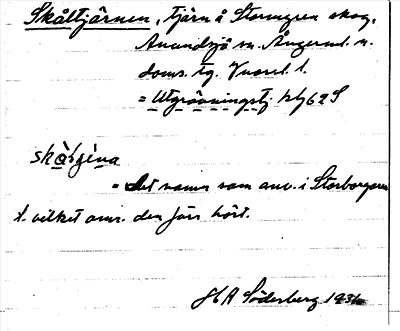 Skåltjärnen, tjärn å Storngren skog,
Anundsjö sn. Ångerml. n.
doms. tg. Vuorel. 1.
= Utgrävningstj. hlj 62 S
skå̀lʒèṇa
= det namn som anv. i Storborgaren
t. vilket omr. den förr hört.
HA Söderberg 1931